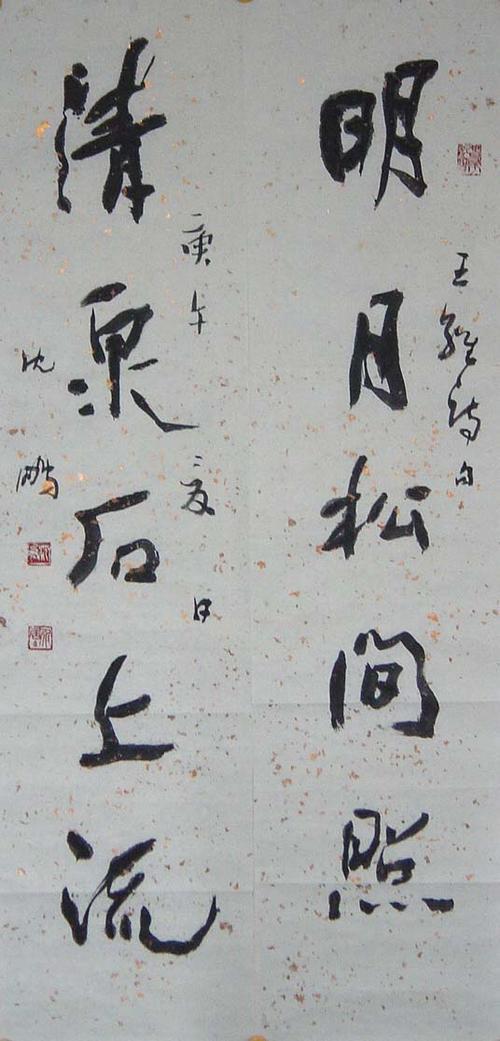 明月松間照
王維詩句
清泉石上流
庚午夏日
沈鵬